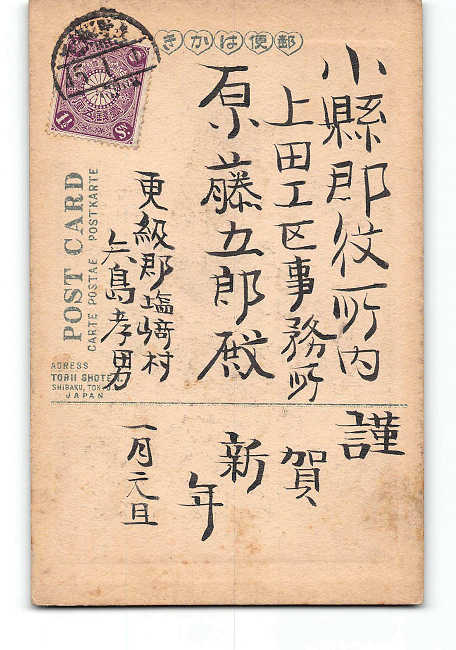 郵便はかき
小縣郡役所内
上田工区事務所
原藤五郎殿
更級郡塩﨑村
矢島孝男
謹
賀
新
年
一月元旦
POST CARD
CARTE POSTAE POSTKARTE
ADRESS
TORII SHOTEN.
SHIBAKU, TOKYO
JAPAN
1½ Sn.